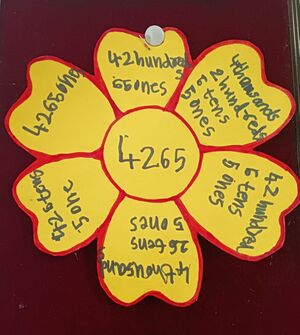 42 hundreds
65 ones
4 thousands
2 hundreds
6 tens
5 ones
42 hundred
6 tens
5 ones
4 thousands
26 tens
5 ones
426 tens
5 one
4265